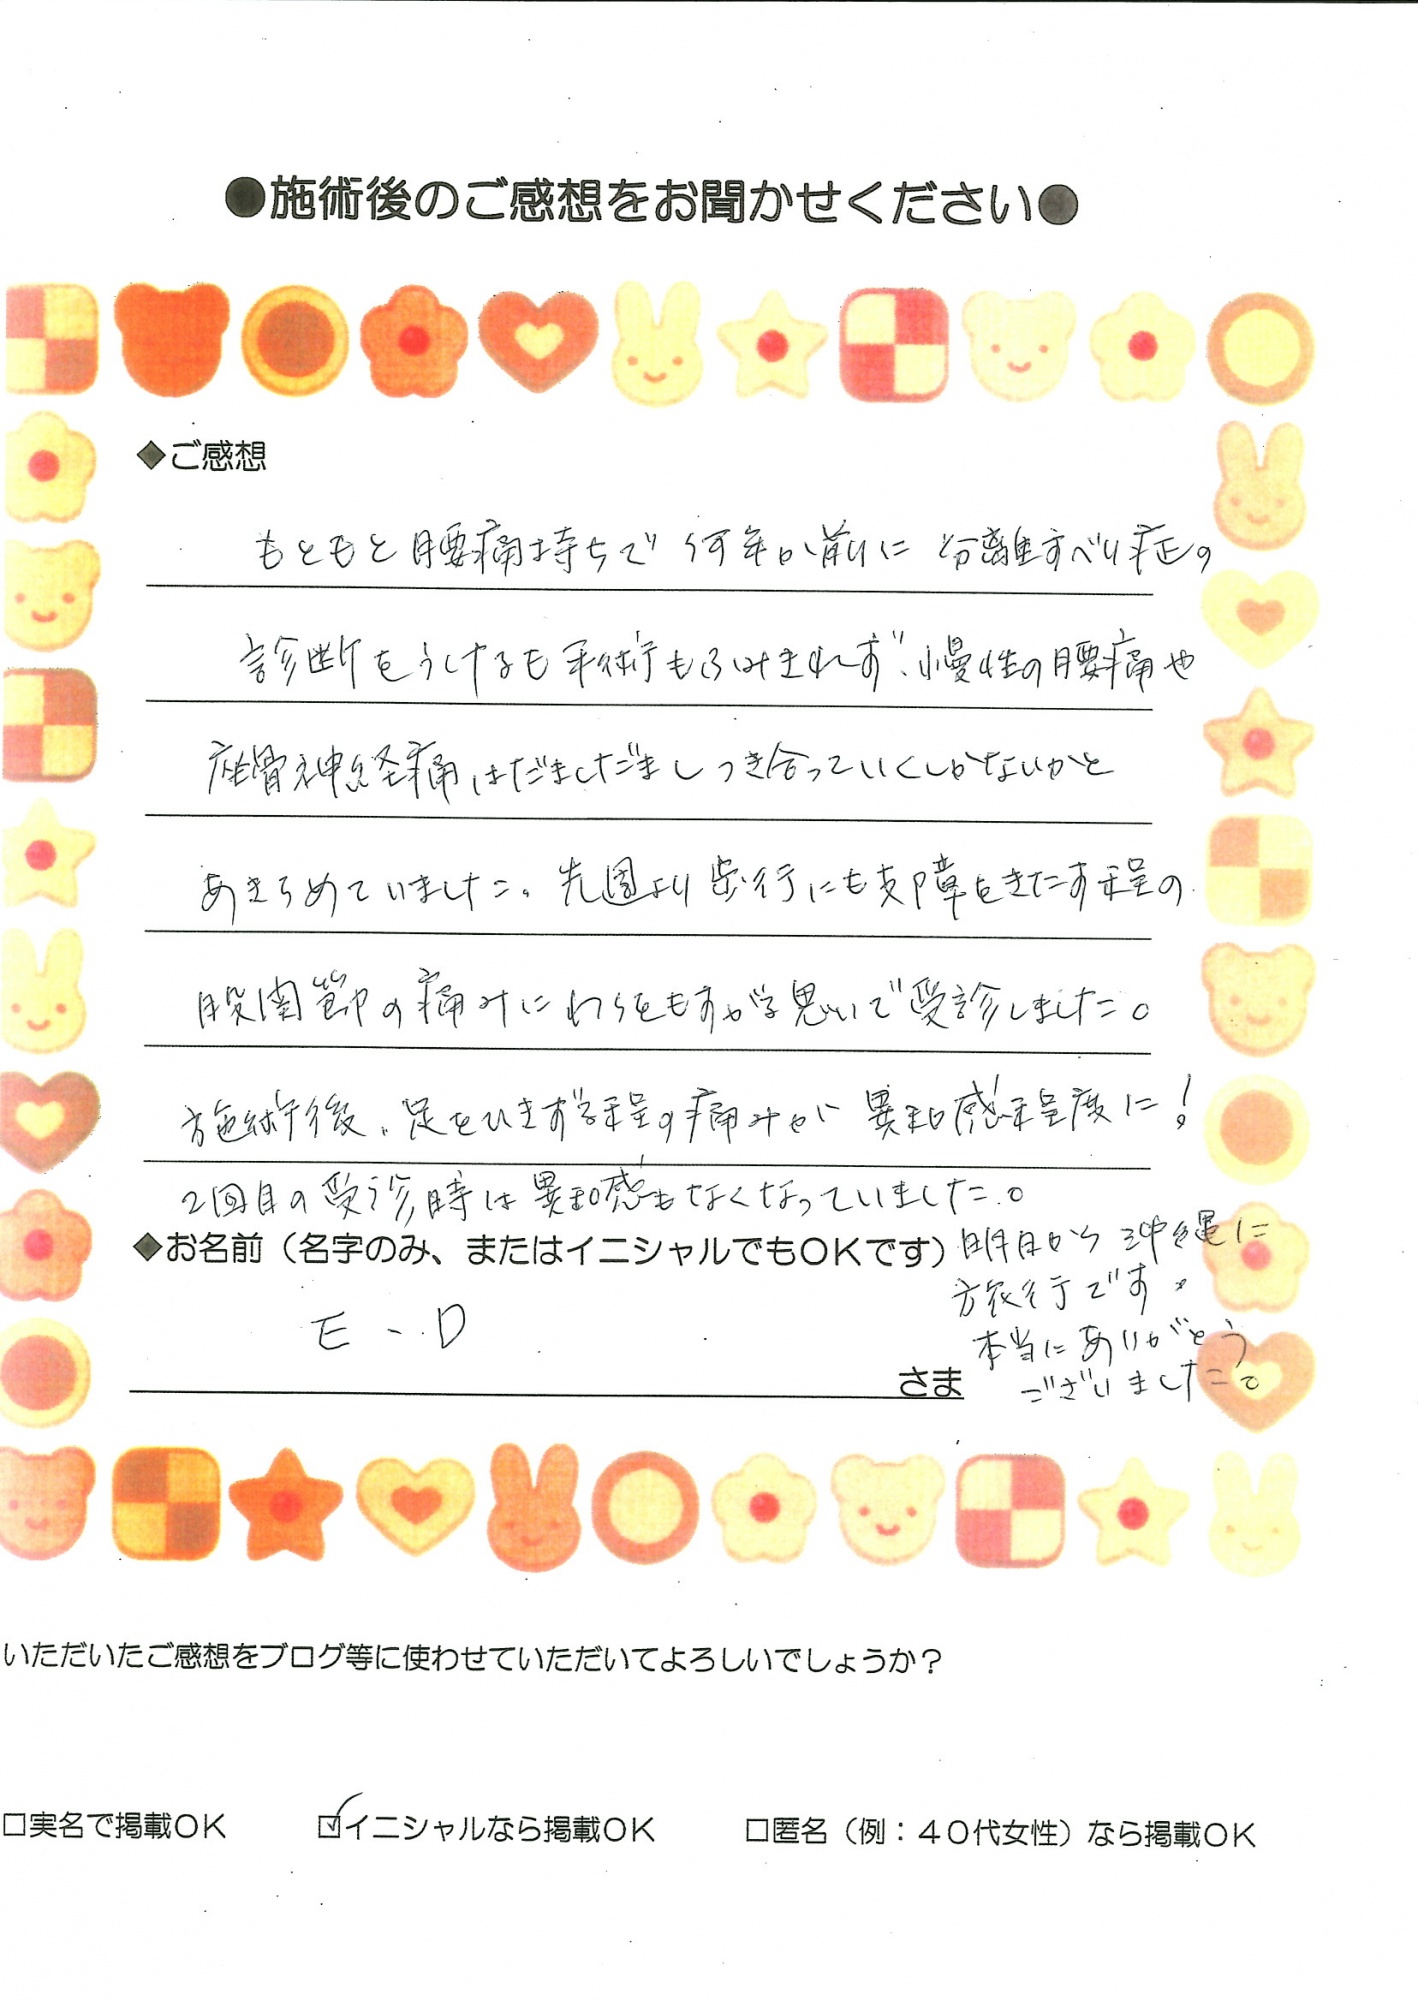 ●施術後のご感想をお聞かせください●
◆ご感想
もともと腰痛持ちで何年か前に分離すべり症の
診断をうけるも手術もふみきれず、慢性の腰痛や
座骨神経痛はだましだましつき合っていくしかないかと
あきらめていました。先週より歩行にも支障をきたす程の
股関節の痛みにわらをもすがる思いで受診しました。
施術後、足をひきずる程の痛みが異和感程度に!
2回目の受診時は異和感もなくなっていました。
◆お名前（名字のみ、またはイニシャルでもOKです）
明日から沖縄に
旅行です。
本当にありがとう
ございました。
E-D
さま
いただいたご感想をブログ等に使わせていただいてよろしいでしょうか？
□実名で掲載OK ☑イニシャルなら掲載OK □匿名（例：40代女性）なら掲載OK